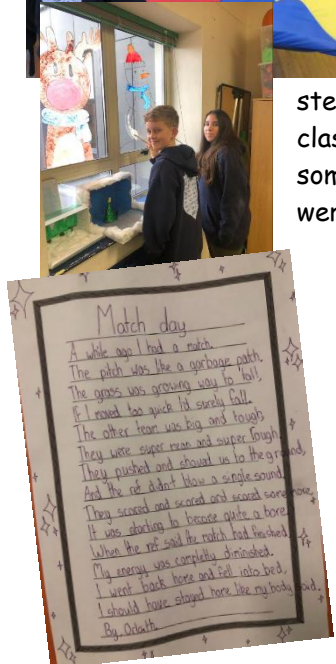 ste
clas
som
wer
Match day
A while ago I had a match.
The pitch was like a garbage patch.
The grass was growing way to tall,
If I moved too quick I'd surely fall.
The other team was big and tough,
They were super mean and super rough.
They pushed and shoved us to the ground,
And the ref didn't blow a single sound.
They scored and scored and scored some more,
It was starting to become quite a bore.
When the ref said the match had finished,
My energy was completly diminished.
I went back home and fell into bed,
I should have stayed home like my body said.
By